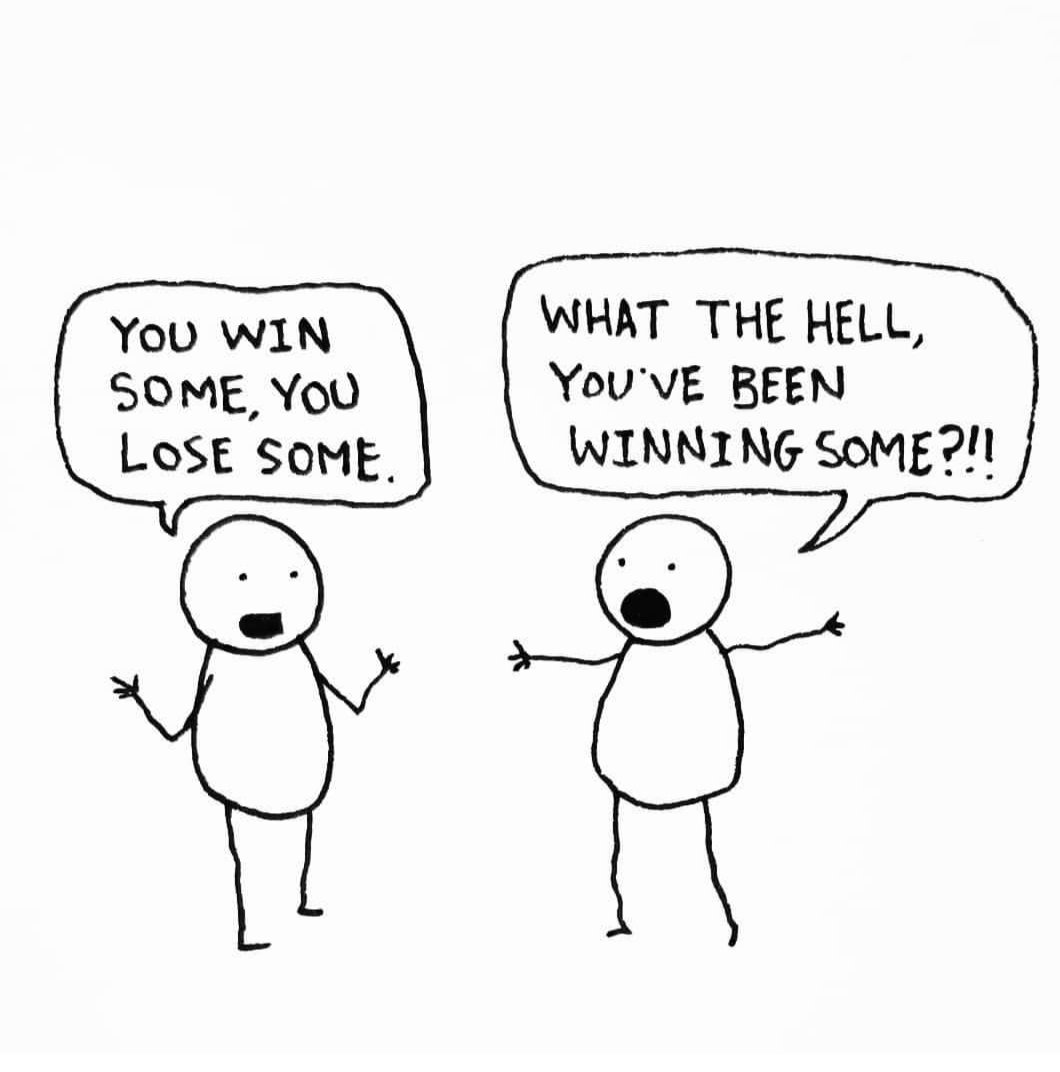 YOU WIN
SOME, YOU
LOSE SOME.
WHAT THE HELL,
YOU'VE BEEN
WINNING SOME?!!